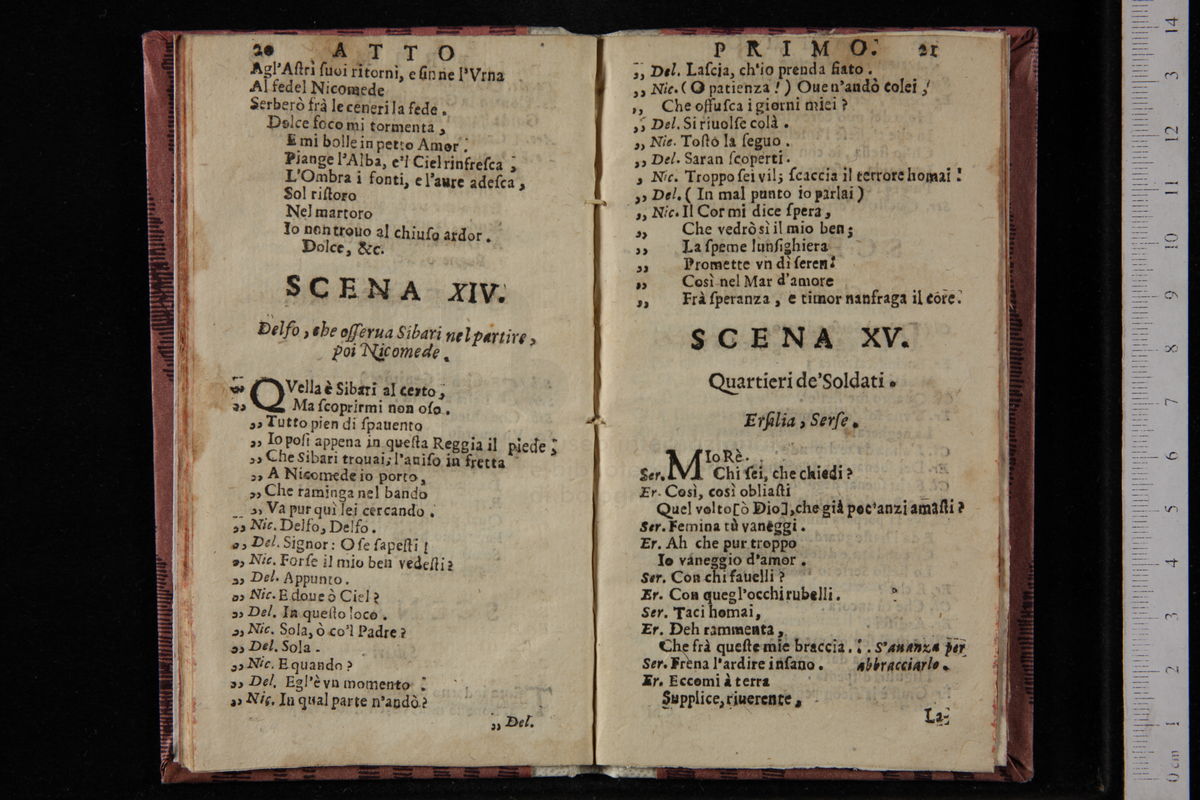 20 ATTO
Agl'Aſtri ſuoi ritorni, e ſin ne l'Vrna
Al fedel Nicomede
Serberò frà le ceneri la fede.
Dolce foco mi tormenta,
E mi bolle in petto Amor:
Piange l'Alba, e'l Ciel rinfreſca;
L'Ombra i fonti, e l'aure adeſca,
Sol riſtoro
Nel martoro
Io non trouo al chiuſo ardor.
Dolce, &c.
SCENA XIV.
Delfo, che oſſerua Sibari nel partire,
poi Nicomede.
,, QVella è Sibari al certo,
,, Ma ſcoprirmi non oſo.
,, Tutto pien di ſpauento
,, Io poſi appena in queſta Reggia il piede;
,, Che Sibari trouai; l'auiſo in fretta
,, A Nicomede io porto,
,, Che raminga nel bando
,, Va pur quì lei cercando.
,, Nic. Delfo, Delfo.
,, Del. Signor: O ſe ſapeſti!
,, Nic. Forſe il mio ben vedeſti?
,, Del. Appunto.
,, Nic. E doue ò Ciel?
,, Del. In queſto loco.
,, Nic. Sola, ò co'l Padre?
,, Del. Sola.
,, Nic. E quando?
,, Del. Egl'è vn momento:
,, Nic. In qual parte n'andò?
,, Del.
PRIMO. 21
,, Del. Laſcia, ch'io prenda fiato.
,, Nic. (O patienza!) Oue n'andò colei,
,, Che offuſca i giorni miei?
,, Del. Si riuolſe colà.
,, Nic. Toſtò la ſeguo.
,, Del. Saran ſcoperti.
, Nic. Troppo ſei vil; ſcaccia il terrore homai!
,, Del. (In mal punto io parlai)
,, Nic. Il Cor mi dice ſpera,
,, Che vedrò sì il mio ben;
,, La ſpeme lunſighiera
,, Promette vn dì ſeren:
,, Così nel Mar d'amore
,, Frà ſperanza, e timor nanfraga il core.
SCENA XV.
Quartieri de'Soldati.
Erſilia, Serſe.
MIo Rè.
Ser. Chi ſei, che chiedi?
Er. Così, così obliaſti
Quel volto [ò Dio], che già poc'anzi amaſti?
Ser. Femina tù vaneggi.
Er. Ah che pur troppo
Io vaneggio d'amor.
Ser. Con chi fauelli?
Er. Con quegl'occhi rubelli.
Ser. Taci homai,
Er. Deh rammenta,
Che frà queſte mie braccia.:. S'auanza per
Ser. Frena l'ardire inſano. abbracciarlo.
Er. Eccomi à terra
Supplice, riuerente,
La